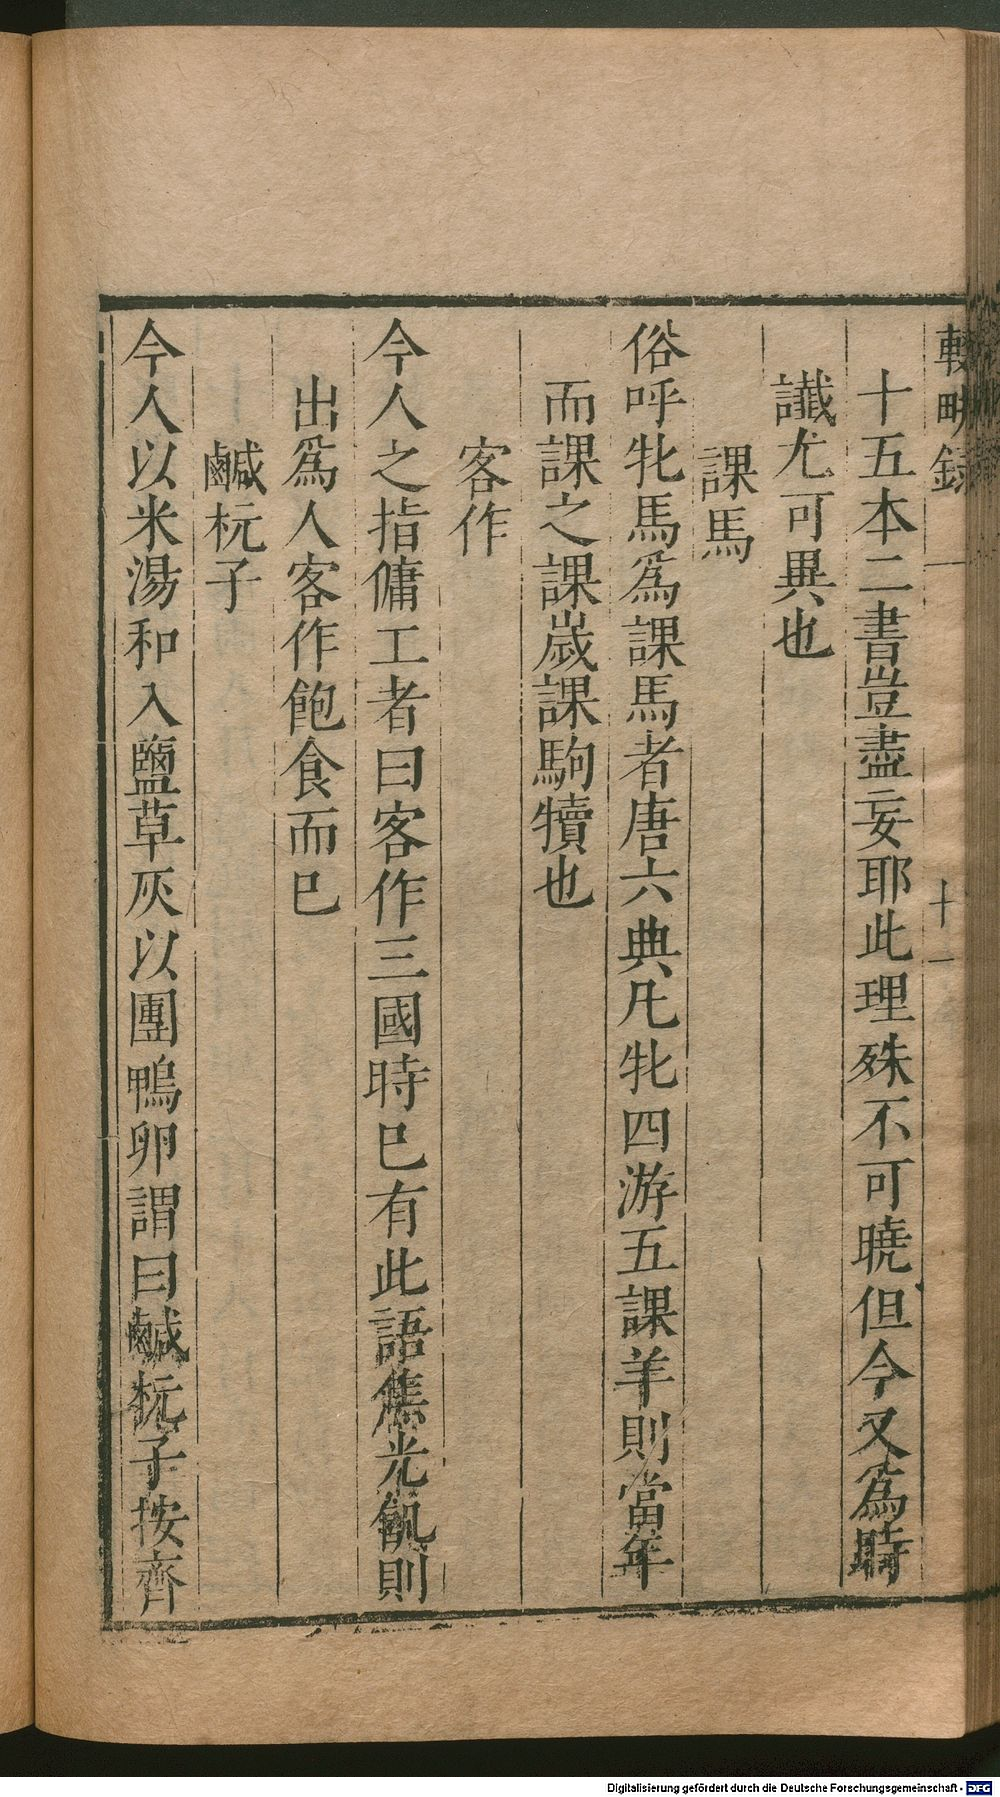 十五本二書豈盡妄耶此理殊不可曉但今又爲時
讖尤可異也
課馬
俗呼牝馬爲課馬者唐六典凡牝四游五課羊則當年
而課之課嵗課駒犢也
客作
今人之指傭工者曰客作三國時已有此語焦光飢則
出爲人客作飽食而已
鹹杬子
今人以米湯和入鹽草灰以團鴨卵謂曰鹹杬子按齊
Digitalisierung gefördert durch die Deutsche Forschungsgemeinschaft - DFG